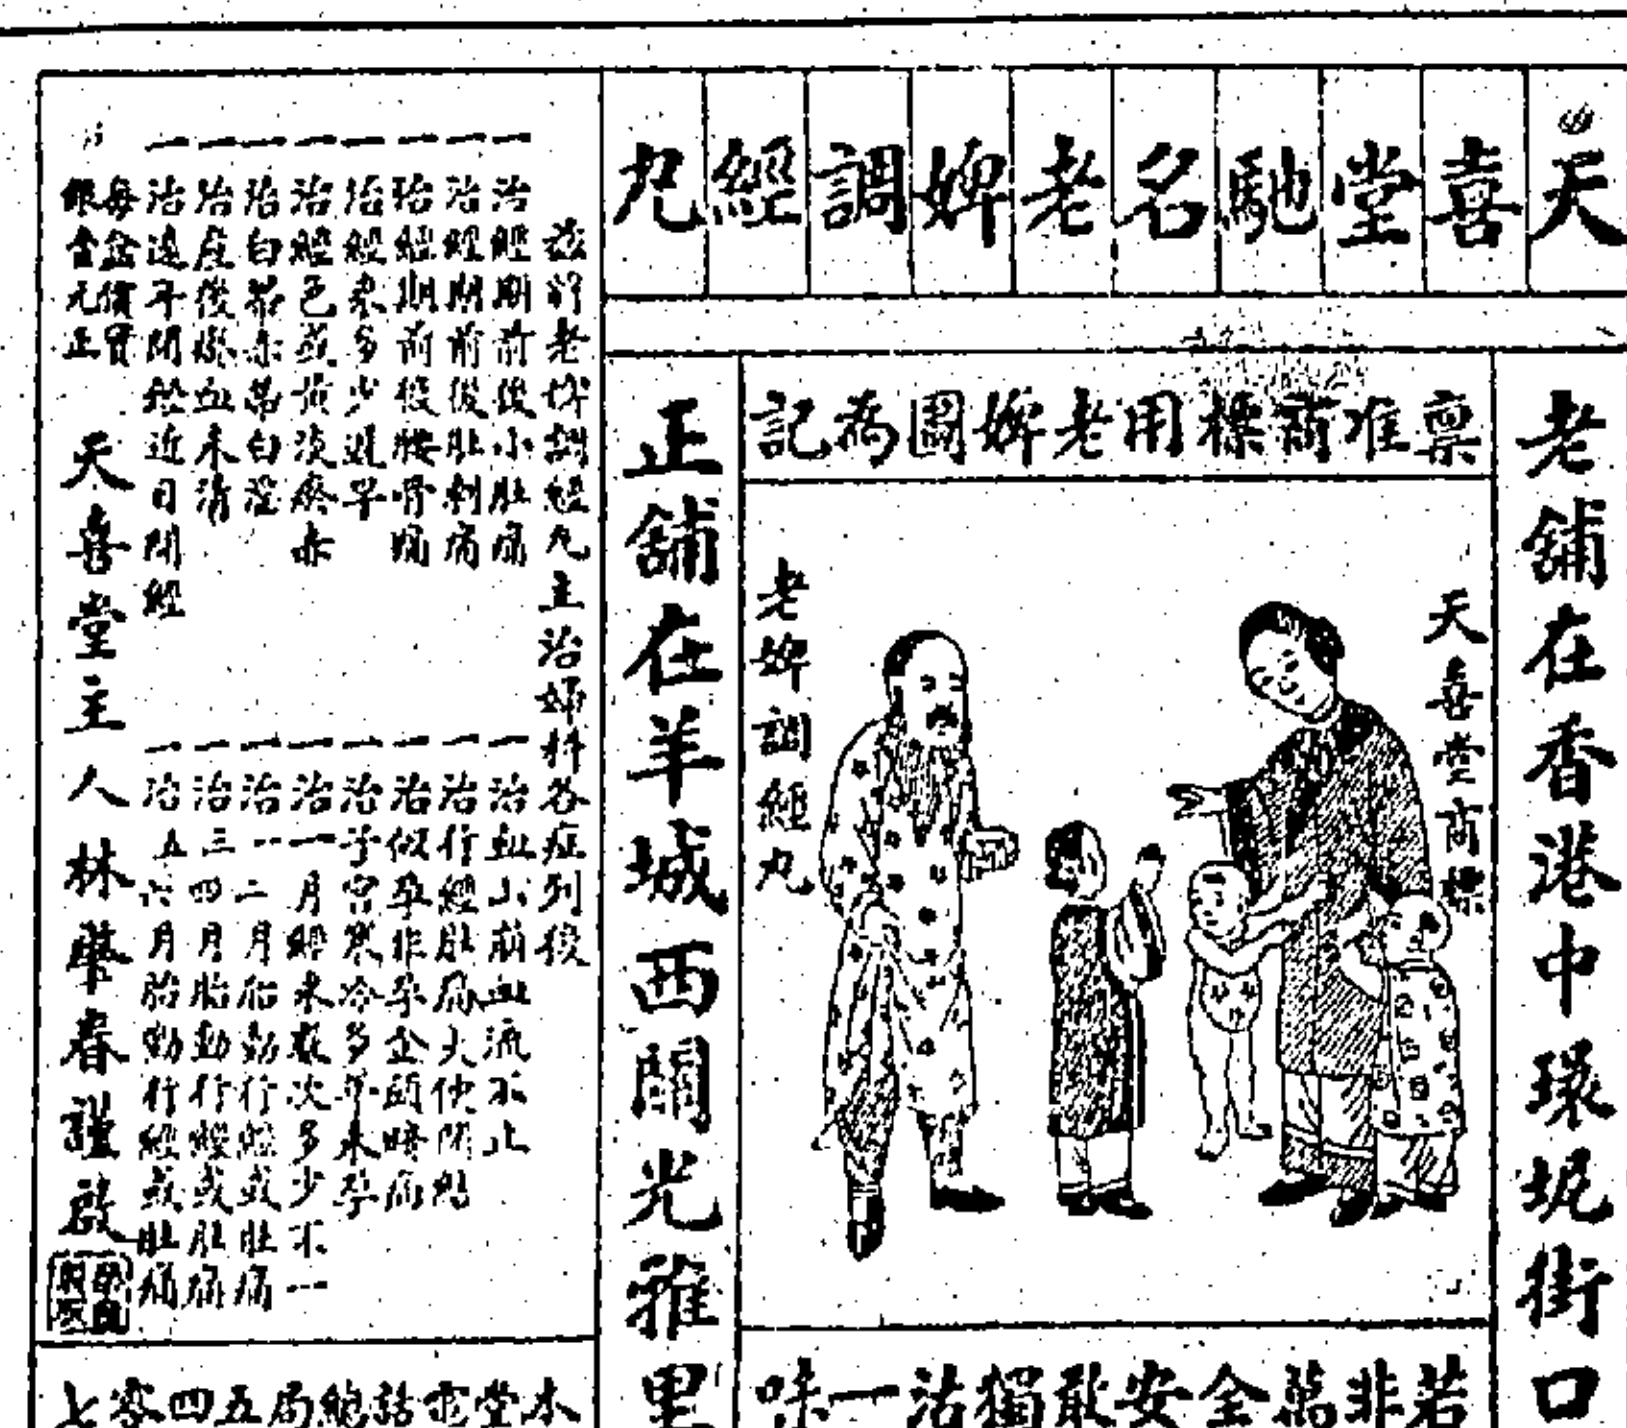 天喜堂馳名老婢調經丸
老舖在香港中環坭街口
稟准商標用老婢圖為記
天喜堂商標
老婢調經丸
若非萬全安敢獨沽一味
正舖在羊城西關光雅里
茲將老婢調經丸主治婦科各症列後
一治經期前後小肚痛
一治經期前後肚刺痛
一治經期前後腰骨痛
一治經來多少遲早
一治經色或黃淡瘀赤
一治白帶赤帶白淫
一治產後瘀血未清
一治遠年閉經近日閉經
一治血山崩血流不止
一治行經肚痛大便閉結
一治似孕非孕企頭暗痛
一治子宮寒冷多年未孕
一治一月經來數次多少不一
一治一二月胎動行經或肚痛
一治三四月胎動行經或肚痛
一治五六月胎動行經或肚痛
每盒價實
銀壹元正
天喜堂主人林肇春謹啟
本堂電話總局五四零七